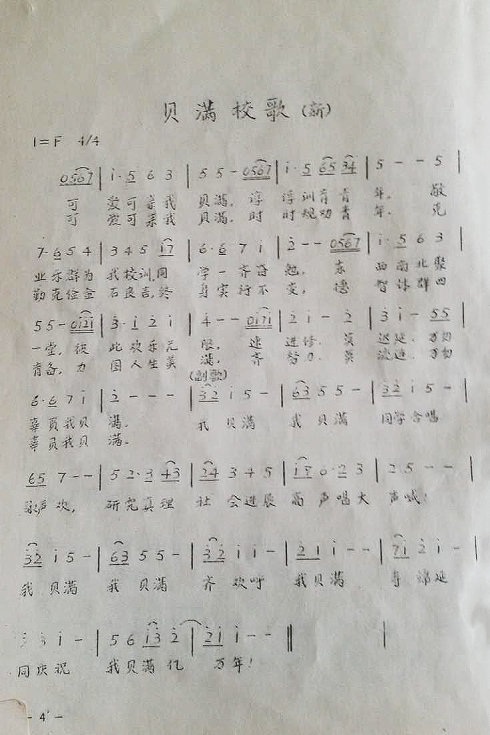 贝满校歌(新)
1=F 4/4
0567 | i·5 6 3 | 5 5-0567 | i·5 65 34 | 5 - - 5 |
可 爱可亲我 贝满, 淳 淳训育青 年, 敬
可 爱可亲我 贝满, 时 时规劝青 年, 克
7·6 5 4 | 3 4 5 i7 | 6·6 7 i | 2 - - 0567 | i·5 6 3 |
业乐群为 我校训同 学一齐奋勉, 东 西南北聚
勤克俭金石良言,终 身实行不变, 德 智体群四
55-0i2i | 3·i 2 i | 4 - - 0i7i | 2 i - 2 | 3 i - 55 |
一堂, 彼 此欢乐无 限, 速 进修, 莫 迟延, 万勿
育备, 力 图人生美 满, 齐 努力, 莫 迟延, 万勿
(副歌)
6·6 7 i | 2 - - - | 32 i 5 - | 63 5 5 - | 32 i 5 - |
辜负我贝 满。 我 贝满 我 贝满 同学合唱
辜负我贝 满。
65 7 - - | 5 2·3 43 | 24 3 4 5 | i5 0·23 | 2·5 - - |
欢, 研究真理 社 会进展 高 声唱大 声喊!
32 i 5 - | 63 5 5 - | 32 i i - | 2i i - - | 7i 2 i - |
我 贝满 我 贝满 齐 欢呼 我贝满 寿 绵延
3 i - | 5 6 i3 2 | 2i i - - ‖
同庆祝 我贝满亿 万年!
- 4 -